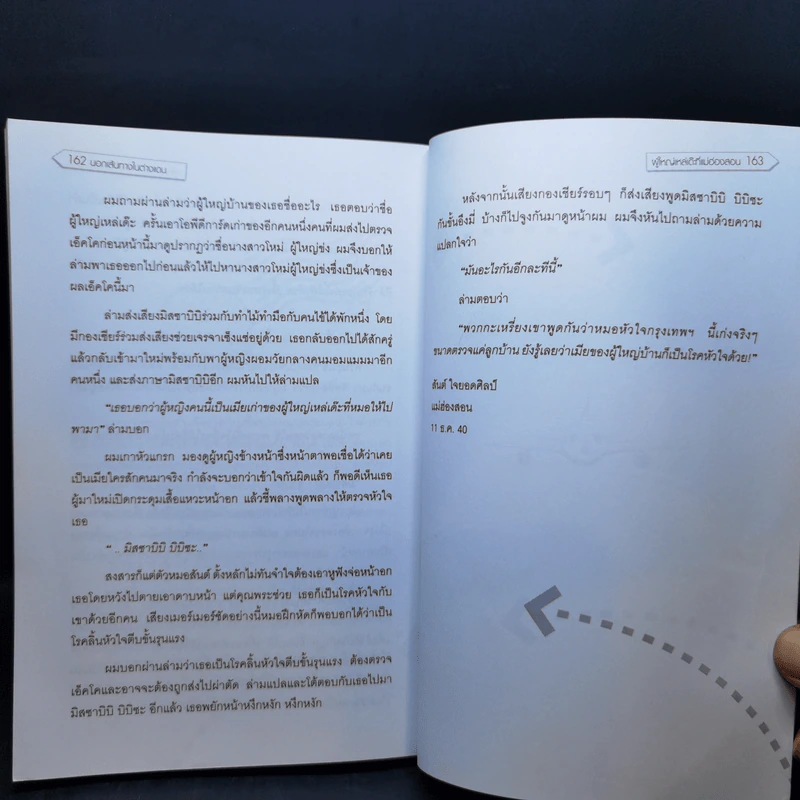 162 นอกเส้นทางในต่างแดน
ผมถามผ่านล่ามว่าผู้ใหญ่บ้านของเธอชื่ออะไร เธอตอบว่าชื่อ
ผู้ใหญ่เหล่เต๊ะ ครั้นเอาโอพีดีการ์ดเก่าของอีกคนหนึ่งคนที่ผมส่งไปตรวจ
เอ็คโคก่อนหน้านี้มาดูปรากฏว่าชื่อนางสาวโหม่ ผู้ใหญ่ช่ง ผมจึงบอกให้
ล่ามพาเธอออกไปก่อนแล้วให้ไปหานางสาวโหม่ผู้ใหญ่ช่งซึ่งเป็นเจ้าของ
ผลเอ็คโคนี้มา
ล่ามส่งเสียงมิสซาบิบิร่วมกับทำไม้ทำมือกับคนไข้ได้พักหนึ่ง โดย
มีกองเชียร์ร่วมส่งเสียงช่วยเจรจาเซ็งแซ่อยู่ด้วย เธอกลับออกไปได้สักครู่
แล้วกลับเข้ามาใหม่พร้อมกับพาผู้หญิงผอมวัยกลางคนมอมแมมมาอีก
คนหนึ่ง และส่งภาษามิสซาบิบิอีก ผมหันไปให้ล่ามแปล
“เธอบอกว่าผู้หญิงคนนี้เป็นเมียเก่าของผู้ใหญ่เหล่เต๊ะที่หมอให้ไป
พามา” ล่ามบอก
ผมเกาหัวแกรก มองดูผู้หญิงข้างหน้าซึ่งหน้าตาพอเชื่อได้ว่าเคย
เป็นเมียใครสักคนมาจริง กำลังจะบอกว่าเข้าใจกันผิดแล้ว ก็พอดีเห็นเธอ
ผู้มาใหม่เปิดกระดุมเสื้อแหวะหน้าอก แล้วชี้พลางพูดพลางให้ตรวจหัวใจ
เธอ
“ .. มิสซาบิบิ บิบิซะ..”
สงสารก็แต่ตัวหมอสันต์ ตั้งหลักไม่ทันจำใจต้องเอาหูฟังจ่อหน้าอก
เธอโดยหวังไปตายเอาดาบหน้า แต่คุณพระช่วย เธอก็เป็นโรคหัวใจกับ
เขาด้วยอีกคน เสียงเมอร์เมอร์ชัดอย่างนี้หมอฝึกหัดก็พอบอกได้ว่าเป็น
โรคลิ้นหัวใจตีบขั้นรุนแรง
ผมบอกผ่านล่ามว่าเธอเป็นโรคลิ้นหัวใจตีบขั้นรุนแรง ต้องตรวจ
เอ็คโคและอาจจะต้องถูกส่งไปผ่าตัด ล่ามแปลและโต้ตอบกับเธอไปมา
มิสซาบิบิ บิบิซะ อีกแล้ว เธอพยักหน้าหงึกหงัก หงึกหงัก
ผู้ใหญ่เหล่เต๊ะที่แม่ฮ่องสอน 163
หลังจากนั้นเสียงกองเชียร์รอบๆ ก็ส่งเสียงพูดมิสซาบิบิ บิบิซะ
กันขั้นอึงมี่ บ้างก็ไปจูงกันมาดูหน้าผม ผมจึงหันไปถามล่ามด้วยความ
แปลกใจว่า
“มันอะไรกันอีกละทีนี้”
ล่ามตอบว่า
“พวกกะเหรี่ยงเขาพูดกันว่าหมอหัวใจกรุงเทพฯ นี้เก่งจริงๆ
ขนาดตรวจแค่ลูกบ้าน ยังรู้เลยว่าเมียของผู้ใหญ่บ้านก็เป็นโรคหัวใจด้วย!”
สันต์ ใจยอดศิลป์
แม่ฮ่องสอน
11 ธ.ค. 40